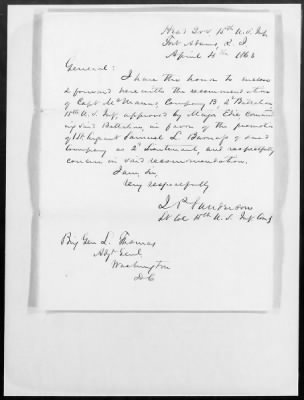 Head Qrs 15th U.S. Inf.
Fort Adams, R.I.
April 4th 1863
General:
I have the honor to endorse
& forward here with the recommendation
of Capt McManus, Company B, 2d Battalion
15th U.S. Inf, approved by Major Edie comd
ing said Battalion, in favor of the promotion
of 1st Sergeant Samuel L. of said
Company as 2d Lieutenant, and respectfully
concur in said recommendation.
I am, Sir,
Very respectfully
Sanderson
Lt Col 15th U.S. Inf Comg
Brig Gen L. Thomas
Adjt Genl,
Washington
D.C